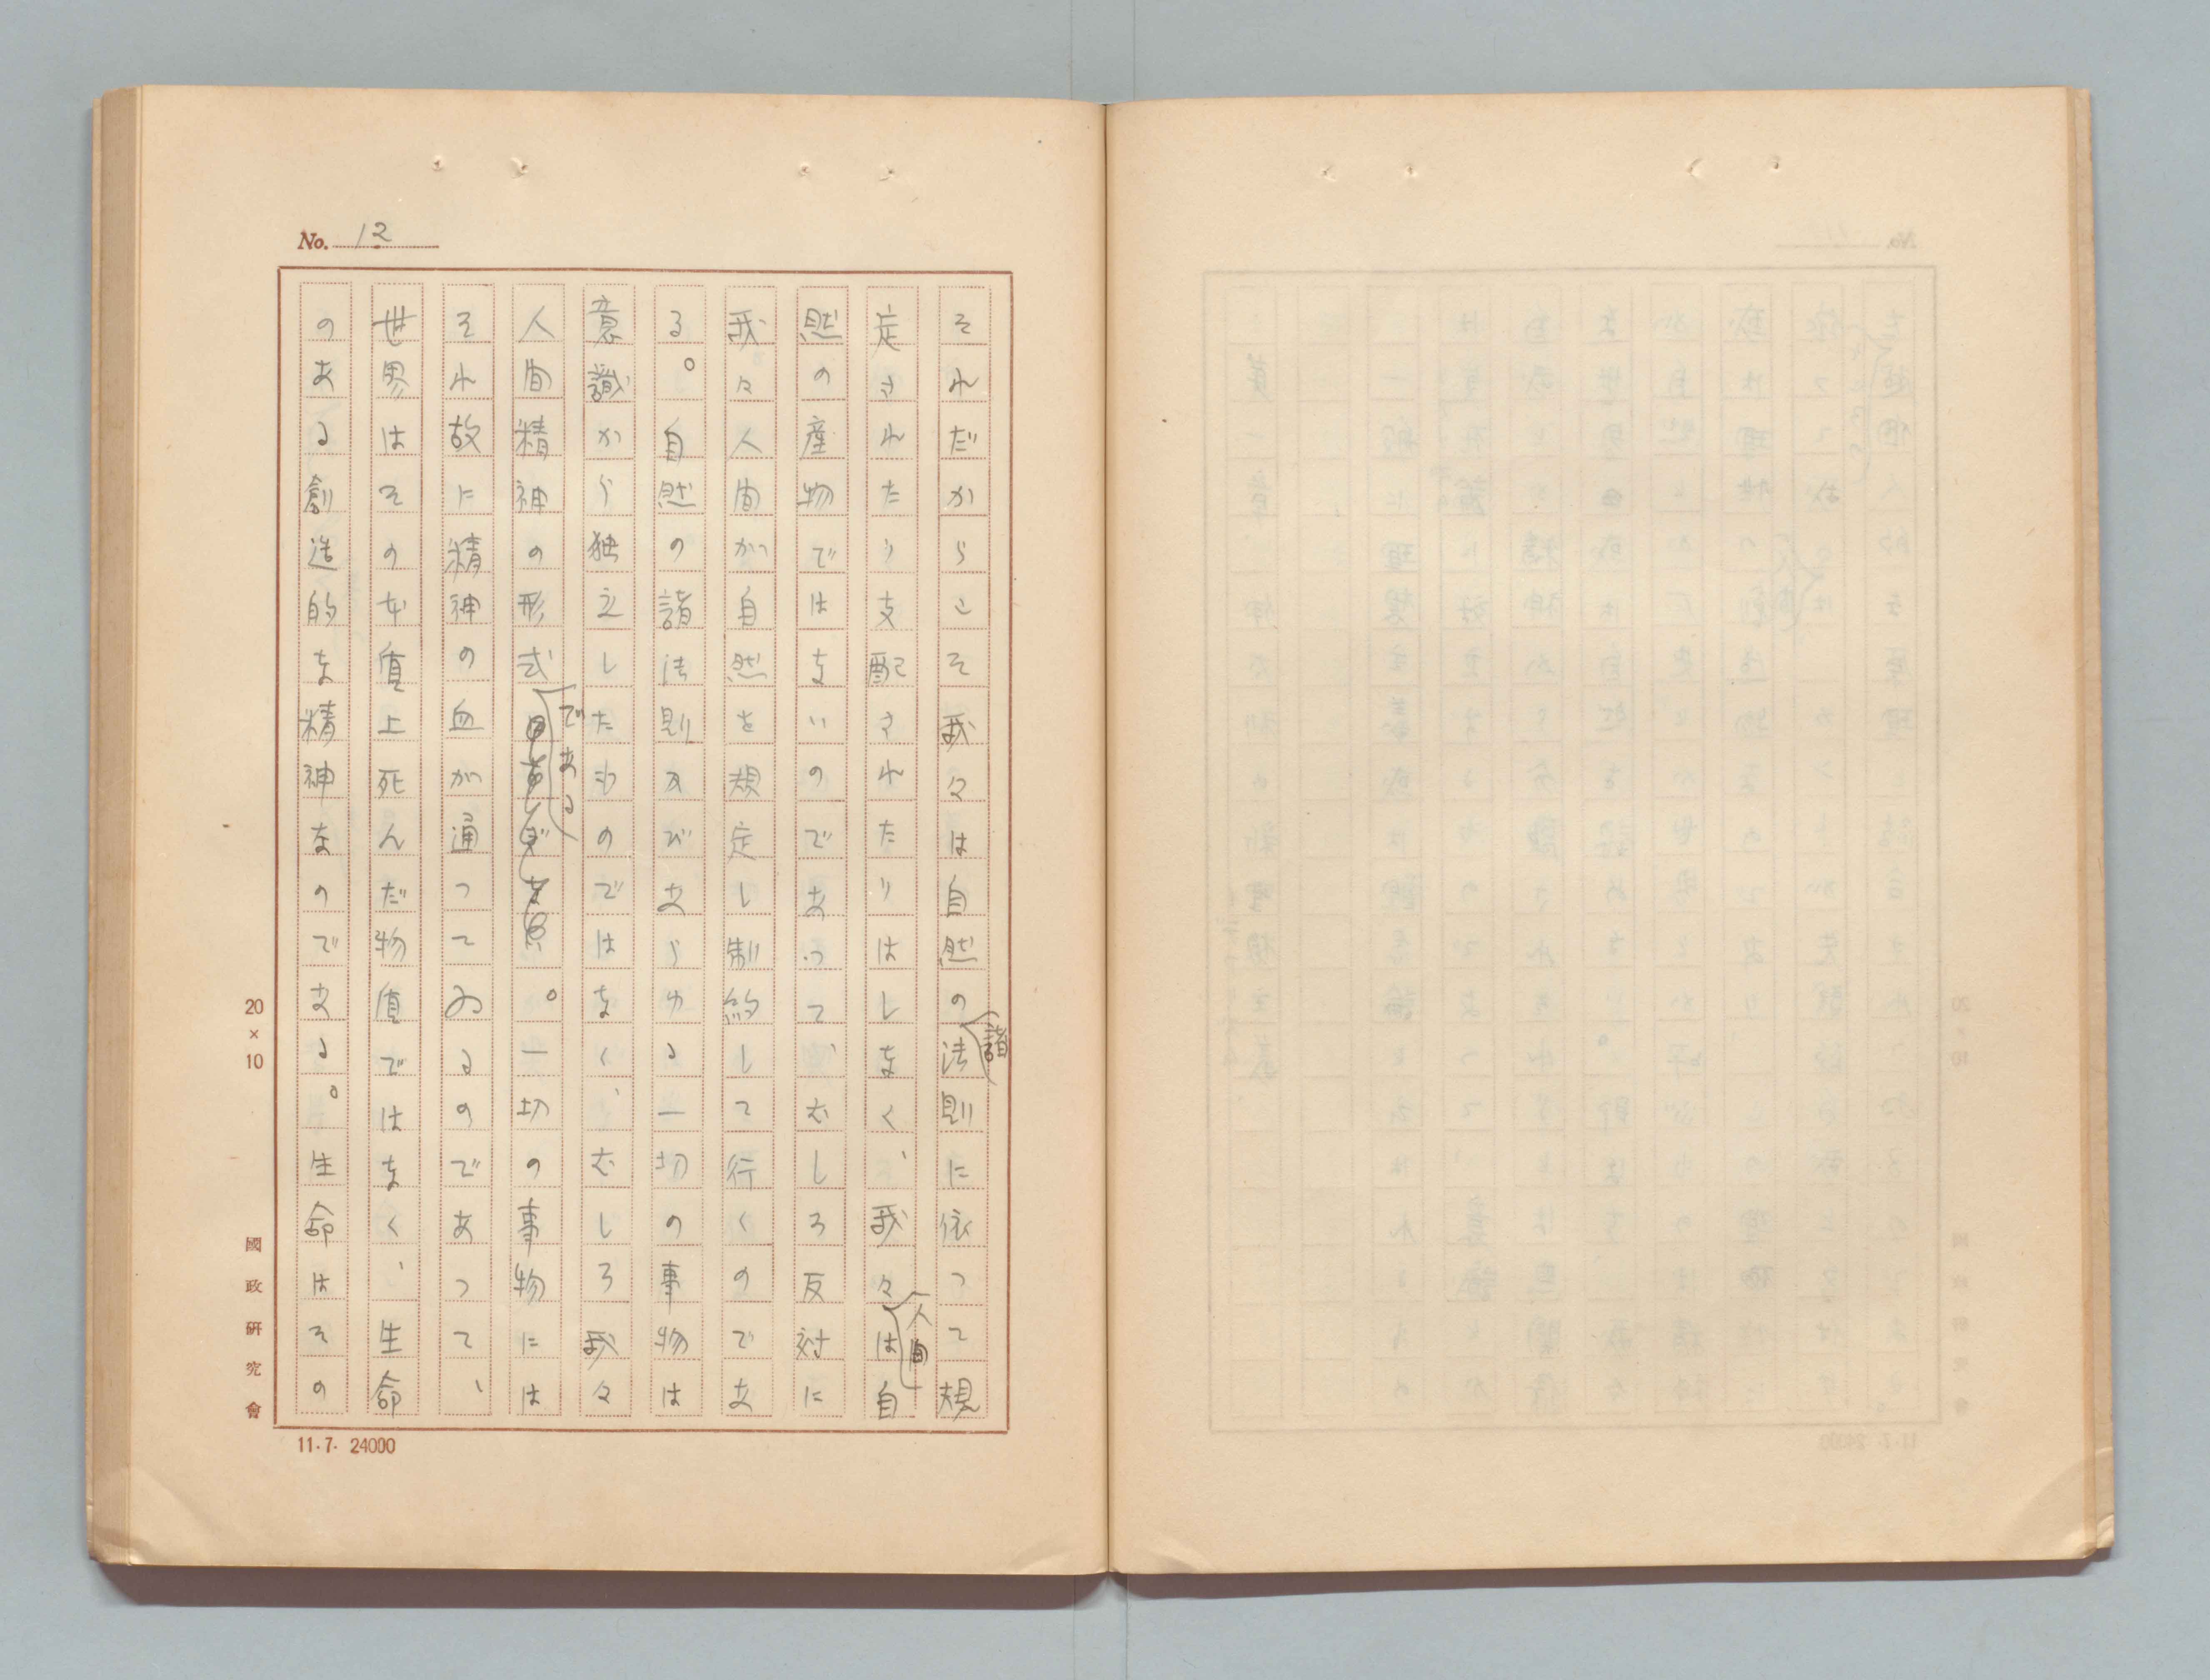 No. 12
それだからこそ我々は自然の諸法則に依つて規
定されたり支配されたりはしなく、我々人間は自
然の産物ではないのであつて、むしろ反対に
我々人間が自然を規定し制約して行くのであ
る。自然の諸法則及びあらゆる一切の事物は
意識から独立したものではなく、むしろ我々
人間精神の形式である。一切の事物には
それ故に精神の血が通つてゐるのであつて、
世界はその本質上死んだ物質ではなく、生命
のある創造的な精神なのである。生命はその
20×10
國政研究會
11.7. 24000